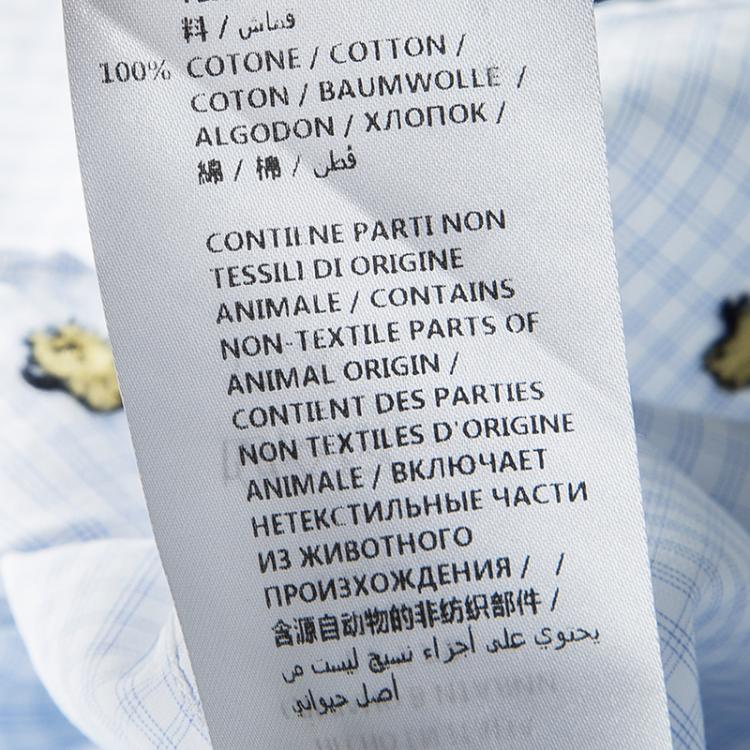 料 / قماش
100% COTONE / COTTON /
COTON / BAUMWOLLE /
ALGODON / ХЛОПОК /
綿 / 棉 / قطن
CONTIENE PARTI NON
TESSILI DI ORIGINE
ANIMALE / CONTAINS
NON-TEXTILE PARTS OF
ANIMAL ORIGIN /
CONTIENT DES PARTIES
NON TEXTILES D'ORIGINE
ANIMALE / ВКЛЮЧАЕТ
НЕТЕКСТИЛЬНЫЕ ЧАСТИ
ИЗ ЖИВОТНОГО
ПРОИЗХОЖДЕНИЯ / /
含源自动物的非纺织部件 /
يحتوي على أجزاء نسيج ليست من
أصل حيواني